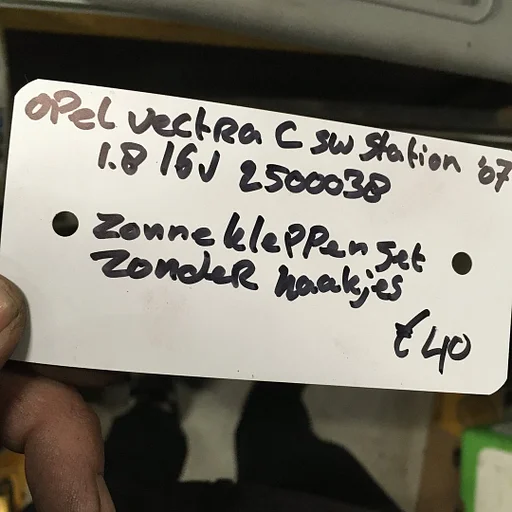 Opel Vectra C SW Station '07
1.8 16V 2500038
Zonnekleppenset
Zonder haakjes
€40